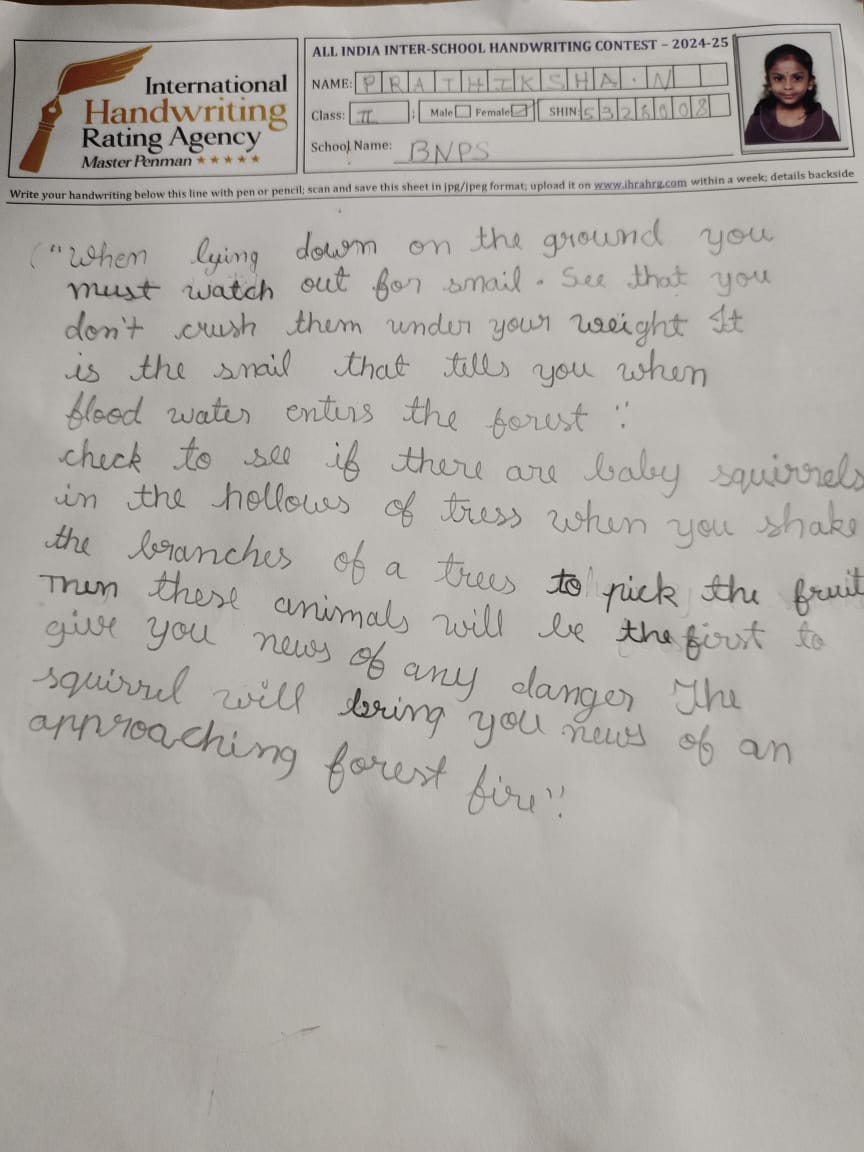 International
Handwriting
Rating Agency
Master Penman ★★★★★
ALL INDIA INTER-SCHOOL HANDWRITING CONTEST – 2024-25
NAME: PRATHIKSHA.N
Class: II ; Male Female SHIN:
School Name: BNPS
Write your handwriting below this line with pen or pencil; scan and save this sheet in jpg/jpeg format; upload it on www.ihrahrg.com within a week; details backside
("When lying down on the ground you
must watch out for snail. See that you
don't crush them under your weight It
is the snail that tells you when
flood water enters the forest".
check to see if there are baby squirrels
in the hollows of tress when you shake
the branches of a trees to pick the fruit
Then these animals will be the first to
give you news of any danger The
squirrel will bring you news of an
approaching forest fire".